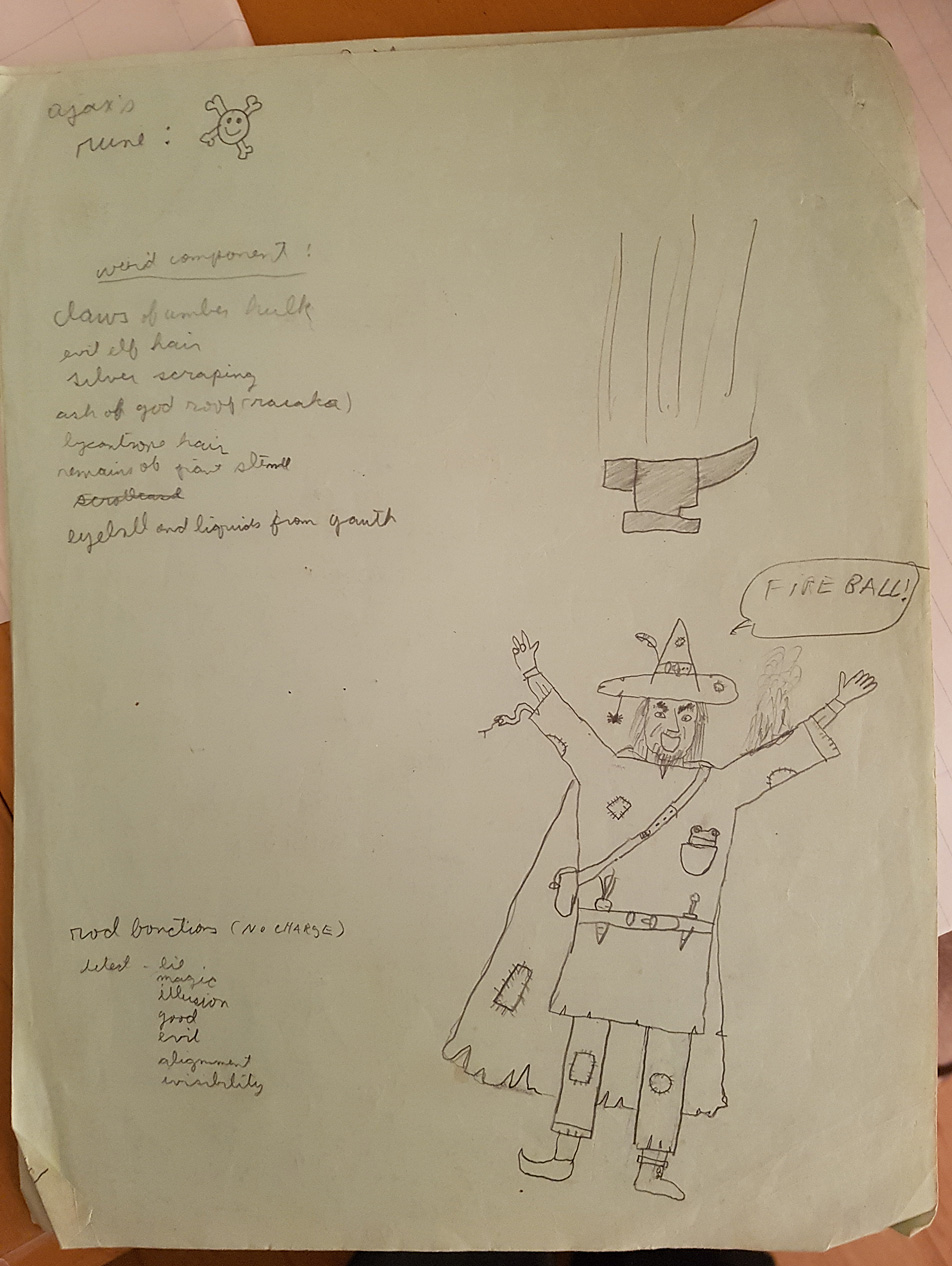 ajax's
rune :
weird component !
claws of umber hulk
evil elf hair
silver scraping
ash of god roof (racaka)
lycantrope hair
remains of giant
eyeball and liquids from gauth
FIREBALL!
rod bonctions (NO CHARGE)
detect - lie
magic
illusion
good
evil
alignment
invisibility